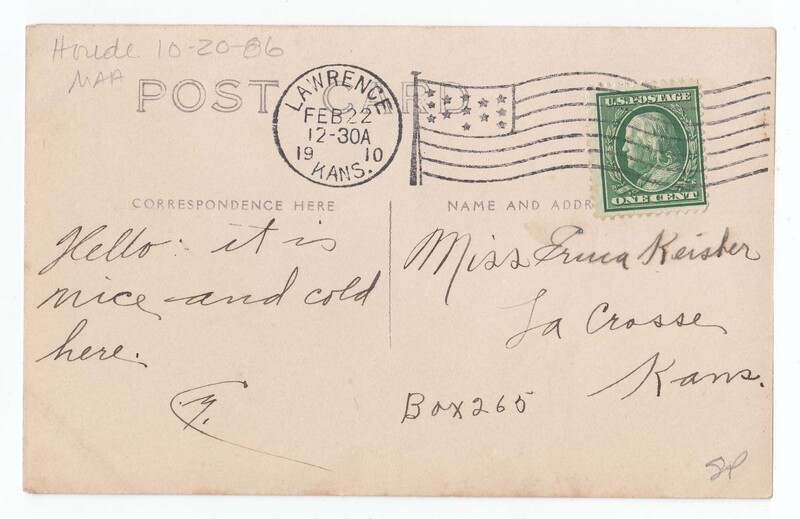 Houde 10-20-86
MAA
POST CARD
LAWRENCE
FEB 22
12-30A
1910
KANS.
U.S. POSTAGE
ONE CENT
CORRESPONDENCE HERE
NAME AND ADDR
Hello: it is
nice and cold
here.
Miss Erma Keisber
La Crosse
Kans.
Box 265